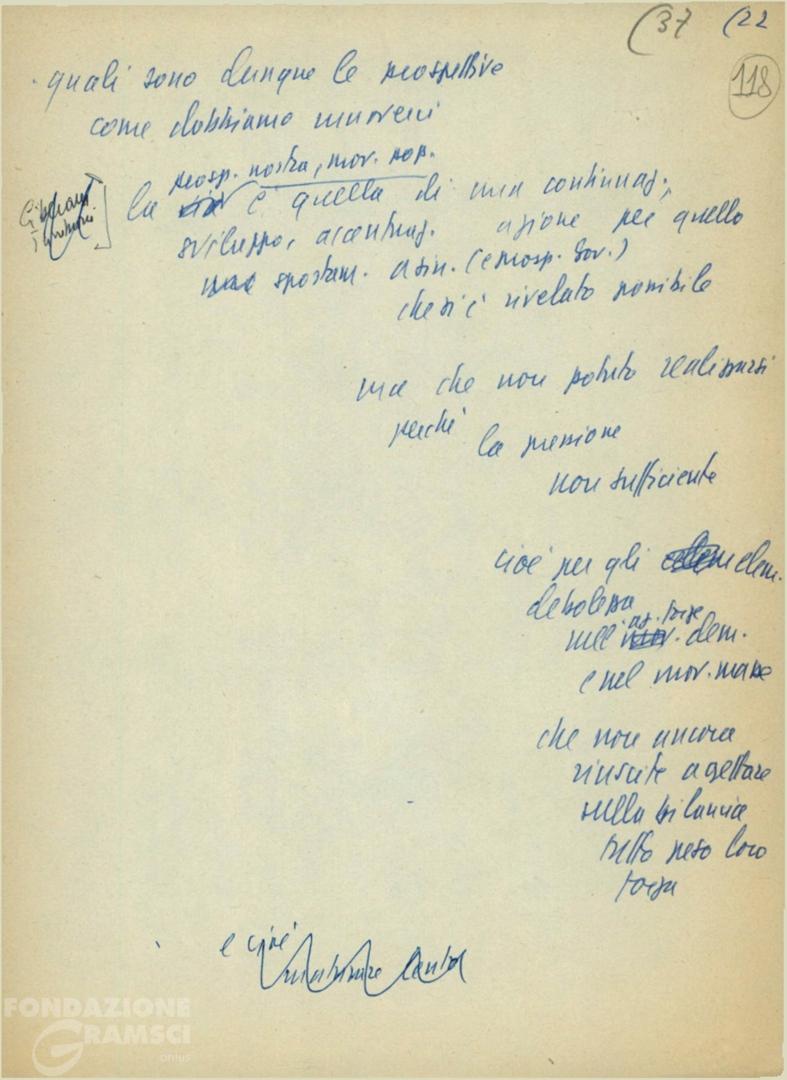 (37 (22
118
quali sono dunque le prospettive
come dobbiamo muoverci
prosp. nostra, mov. pop.
la è quella di una continuaz.,
sviluppo, accentuaz. azione per quello
spostam. a sin. (e prosp. Gov.)
che si è rivelato possibile
ma che non potuto realizzarsi
perché
la pressione
non sufficiente
cioè per gli elem.
debolezza
az. forze
nell' dem.
e nel mov. masse
che non ancora
riuscite a gettare
sulla bilancia
tutto peso loro
forza
e cioè
FONDAZIONE
GRAMSCI
onlus